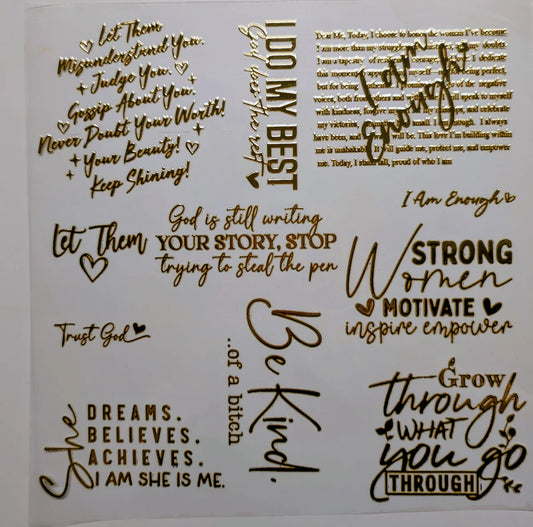 Let Them
Misunderstand You.
Judge You.
Gossip About You.
Never Doubt Your Worth!
Your Beauty!
Keep Shining!
I DO MY BEST
God does the rest
Dear Me, Today, I choose to honor the woman I've become.
I am more than my struggle my doubts.
I am a tapestry of courage, I dedicate
this moment to myself being perfect,
but for being of the negative
voices, both from others will speak to myself
with kindness, forgive my and celebrate
my victories, small. I am enough. I always
have been, and will be. This love I'm building within
me is unshakable. It will guide me, protect me, and empower
me. Today, I stand tall, proud of who I am
I am
Enough
I Am Enough
Let Them
God is still writing
YOUR STORY, STOP
trying to steal the pen
STRONG
Women
MOTIVATE
inspire empower
Trust God
Be Kind.
..of a bitch
She
DREAMS.
BELIEVES.
ACHIEVES.
I AM SHE IS ME.
Grow
through
WHAT
you go
THROUGH